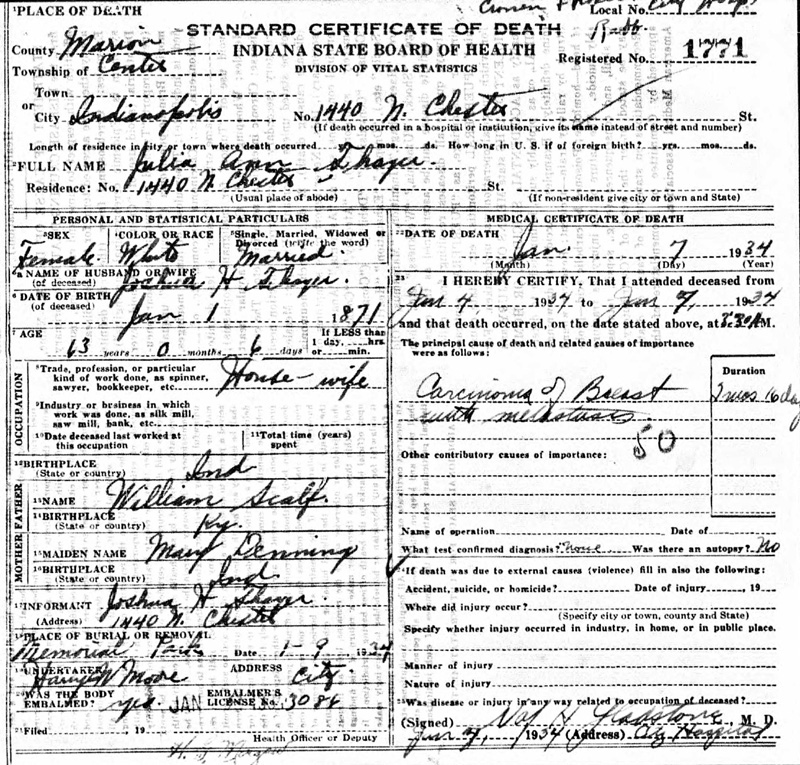 ¹PLACE OF DEATH
Local No. City Hosp.
STANDARD CERTIFICATE OF DEATH
County Marion
INDIANA STATE BOARD OF HEALTH
Registered No. 1771
Township of Center
DIVISION OF VITAL STATISTICS
Town
or
City Indianapolis No. 1440 N. Chester St.
(If death occurred in a hospital or institution, give its name instead of street and number)
Length of residence in city or town where death occurred yrs. mos. ds. How long in U. S. if of foreign birth? yrs. mos. ds.
²FULL NAME Julia Ann Thayer.
Residence: No. 1440 N Chester St.
(Usual place of abode) (If non-resident give city or town and State)
PERSONAL AND STATISTICAL PARTICULARS
³SEX ⁴COLOR OR RACE ⁵Single, Married, Widowed or Divorced (write the word)
Female White Married
⁵ᵃNAME OF HUSBAND OR WIFE
(of deceased) Joshua H Thayer.
⁶DATE OF BIRTH
(of deceased) Jan 1 1871
⁷AGE If LESS than
63 years 0 months 6 days 1 day, hrs. or min.
OCCUPATION
⁸Trade, profession, or particular
kind of work done, as spinner,
sawyer, bookkeeper, etc. House-wife
⁹Industry or business in which
work was done, as silk mill,
saw mill, bank, etc.
¹⁰Date deceased last worked at
this occupation
¹¹Total time (years)
spent
¹²BIRTHPLACE
(State or country) Ind
FATHER
¹³NAME William Scalf.
¹⁴BIRTHPLACE
(State or country) Ky.
MOTHER
¹⁵MAIDEN NAME Mary Denning
¹⁶BIRTHPLACE
(State or country) Ind.
¹⁷INFORMANT Joshua H Thayer.
(Address) 1440 N. Chester
¹⁸PLACE OF BURIAL OR REMOVAL
Memorial Park Date 1-9 1934
¹⁹UNDERTAKER ADDRESS
Harry W Moore City.
²⁰WAS THE BODY
EMBALMED? yes. JAN
EMBALMER'S
LICENSE No. 3086
²¹Filed , 19
Health Officer or Deputy
MEDICAL CERTIFICATE OF DEATH
²²DATE OF DEATH Jan. 7 1934
(Month) (Day) (Year)
²³ I HEREBY CERTIFY, That I attended deceased from
Jan 4, 1934 to Jan 7, 1934
and that death occurred, on the date stated above, at 3:30 A.M.
The principal cause of death and related causes of importance
were as follows:
Duration
Carcinoma of Breast 2 mos 16 day
with metastasis.
50
Other contributory causes of importance:
Name of operation Date of
What test confirmed diagnosis? None. Was there an autopsy? No
²⁴If death was due to external causes (violence) fill in also the following:
Accident, suicide, or homicide? Date of injury , 19
Where did injury occur?
(Specify city or town, county and State)
Specify whether injury occurred in industry, in home, or in public place.
Manner of injury
Nature of injury
²⁵Was disease or injury in any way related to occupation of deceased?
(Signed) H Gladstone, M. D.
Jan 7, 1934 (Address) City Hospital